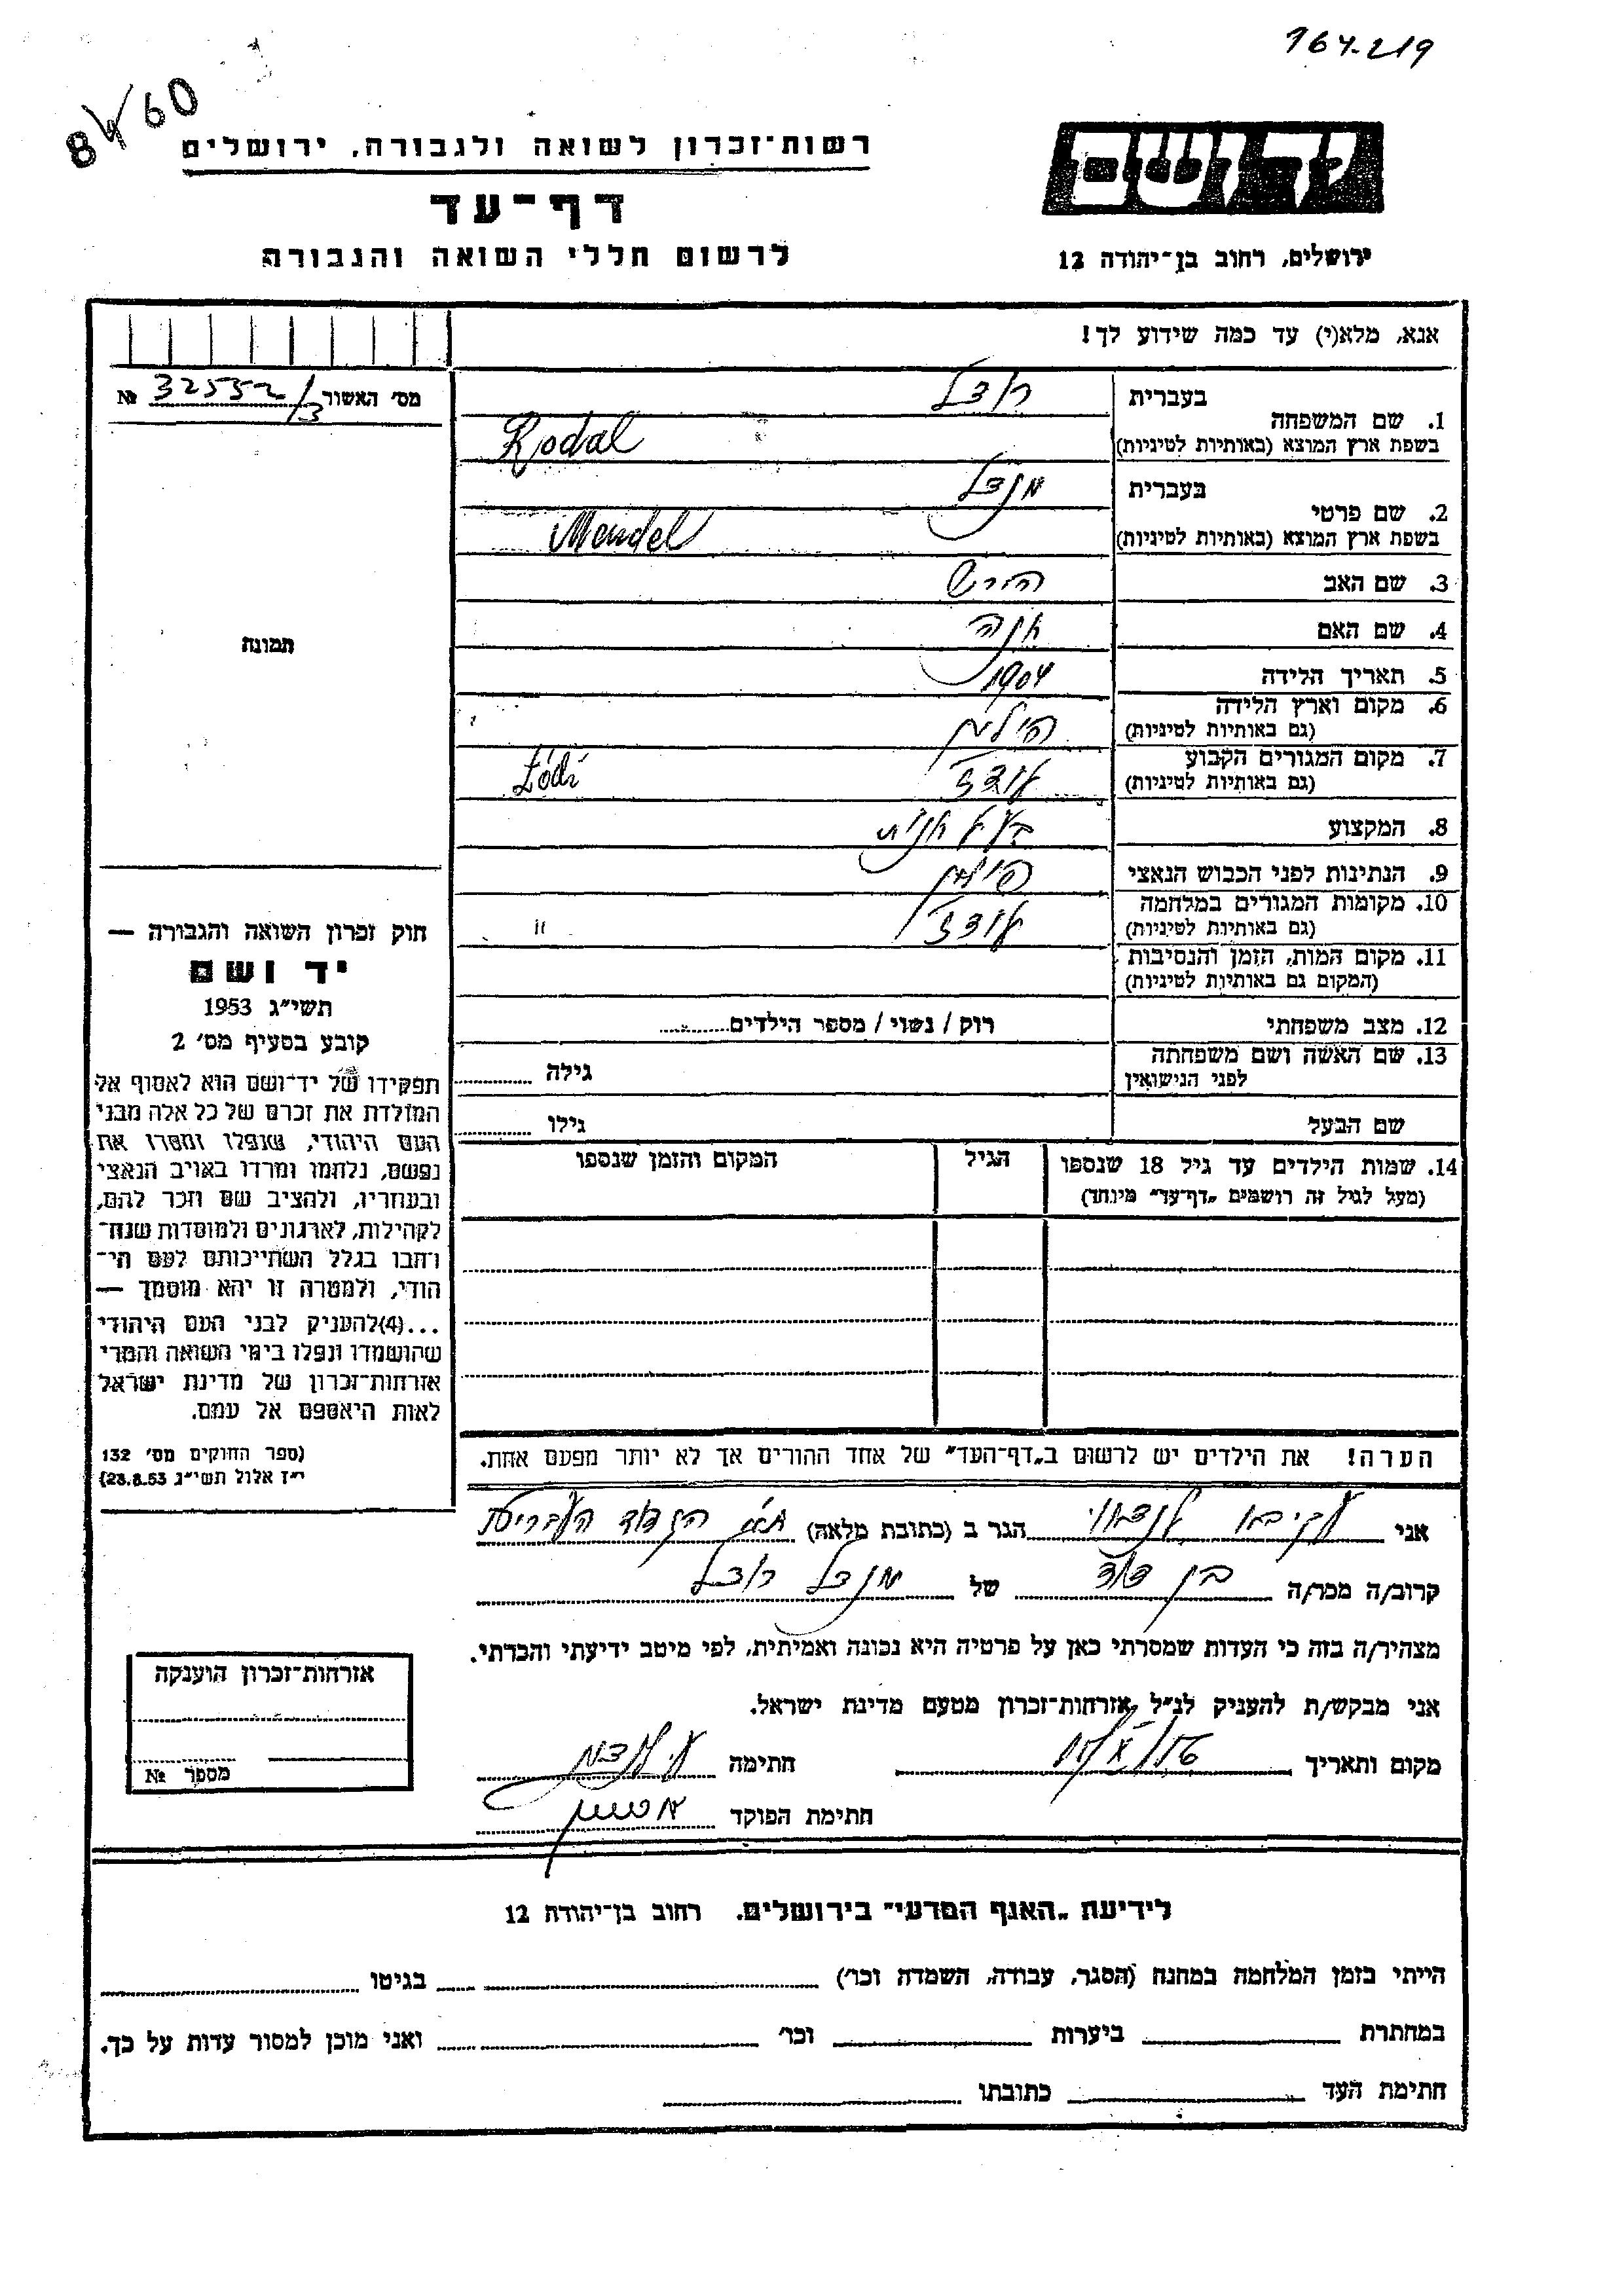 164-219
84/60
יד ושם
רשות־זכרון לשואה ולגבורה, ירושלים
דף־עד
לרשום חללי השואה והגבורה
ירושלים, רחוב בן־יהודה 12
אנא, מלא(י) עד כמה שידוע לך!
מס׳ האשור 32552/3 №
בעברית רודל
1. שם המשפחה
בשפת ארץ המוצא (באותיות לטיניות) Rodal
בעברית מנדל
2. שם פרטי
בשפת ארץ המוצא (באותיות לטיניות) Mendel
3. שם האב הירש
4. שם האם חנה
5. תאריך הלידה 1904
6. מקום וארץ הלידה פולין
(גם באותיות לטיניות)
7. מקום המגורים הקבוע לודז׳ Łódź
(גם באותיות לטיניות)
8. המקצוע בעל חנות
9. הנתינות לפני הכבוש הנאצי פולין
10. מקומות המגורים במלחמה לודז׳ "
(גם באותיות לטיניות)
11. מקום המות, הזמן והנסיבות
(המקום גם באותיות לטיניות)
12. מצב משפחתי רוק / נשוי / מספר הילדים
13. שם האשה ושם משפחתה
לפני הנישואין גילה
שם הבעל גילו
14. שמות הילדים עד גיל 18 שנספו הגיל המקום והזמן שנספו
(מעל לגיל זה רושמים „דף־עד" מיוחד)
הערה! את הילדים יש לרשום ב„דף־העד" של אחד ההורים אך לא יותר מפעם אחת.
תמונה
חוק זכרון השואה והגבורה —
יד ושם
תשי״ג 1953
קובע בסעיף מס׳ 2
תפקידו של יד־ושם הוא לאסוף אל
המולדת את זכרם של כל אלה מבני
העם היהודי, שנפלו ומסרו את
נפשם, נלחמו ומרדו באויב הנאצי
ובעוזריו, ולהציב שם וזכר להם,
לקהילות, לארגונים ולמוסדות שנח־
רחבו בגלל השתייכותם לעם הי־
הודי, ולמטרה זו יהא מוסמך —
...(4)להעניק לבני העם היהודי
שהושמדו ונפלו בימי השואה והמרי
אזרחות־זכרון של מדינת ישראל
לאות היאספם אל עמם.
(ספר החוקים מס׳ 132
י״ז אלול תשי״ג 28.8.53)
אני עקיבא הגר ב (כתובת מלאה) ת״א
קרוב/ה מכר/ה בן דוד של מנדל רודל
מצהיר/ה בזה כי העדות שמסרתי כאן על פרטיה היא נכונה ואמיתית, לפי מיטב ידיעתי והכרתי.
אני מבקש/ת להעניק לנ״ל אזרחות־זכרון מטעם מדינת ישראל.
מקום ותאריך חתימה
חתימת הפוקד
אזרחות־זכרון הוענקה
מספר №
לידיעת „האגף המדעי" בירושלים. רחוב בן־יהודה 12
הייתי בזמן המלחמה במחנה (הסגר, עבודה, השמדה וכו׳) בגיטו
במחתרת ביערות וכו׳ ואני מוכן למסור עדות על כך.
חתימת העד כתובתו